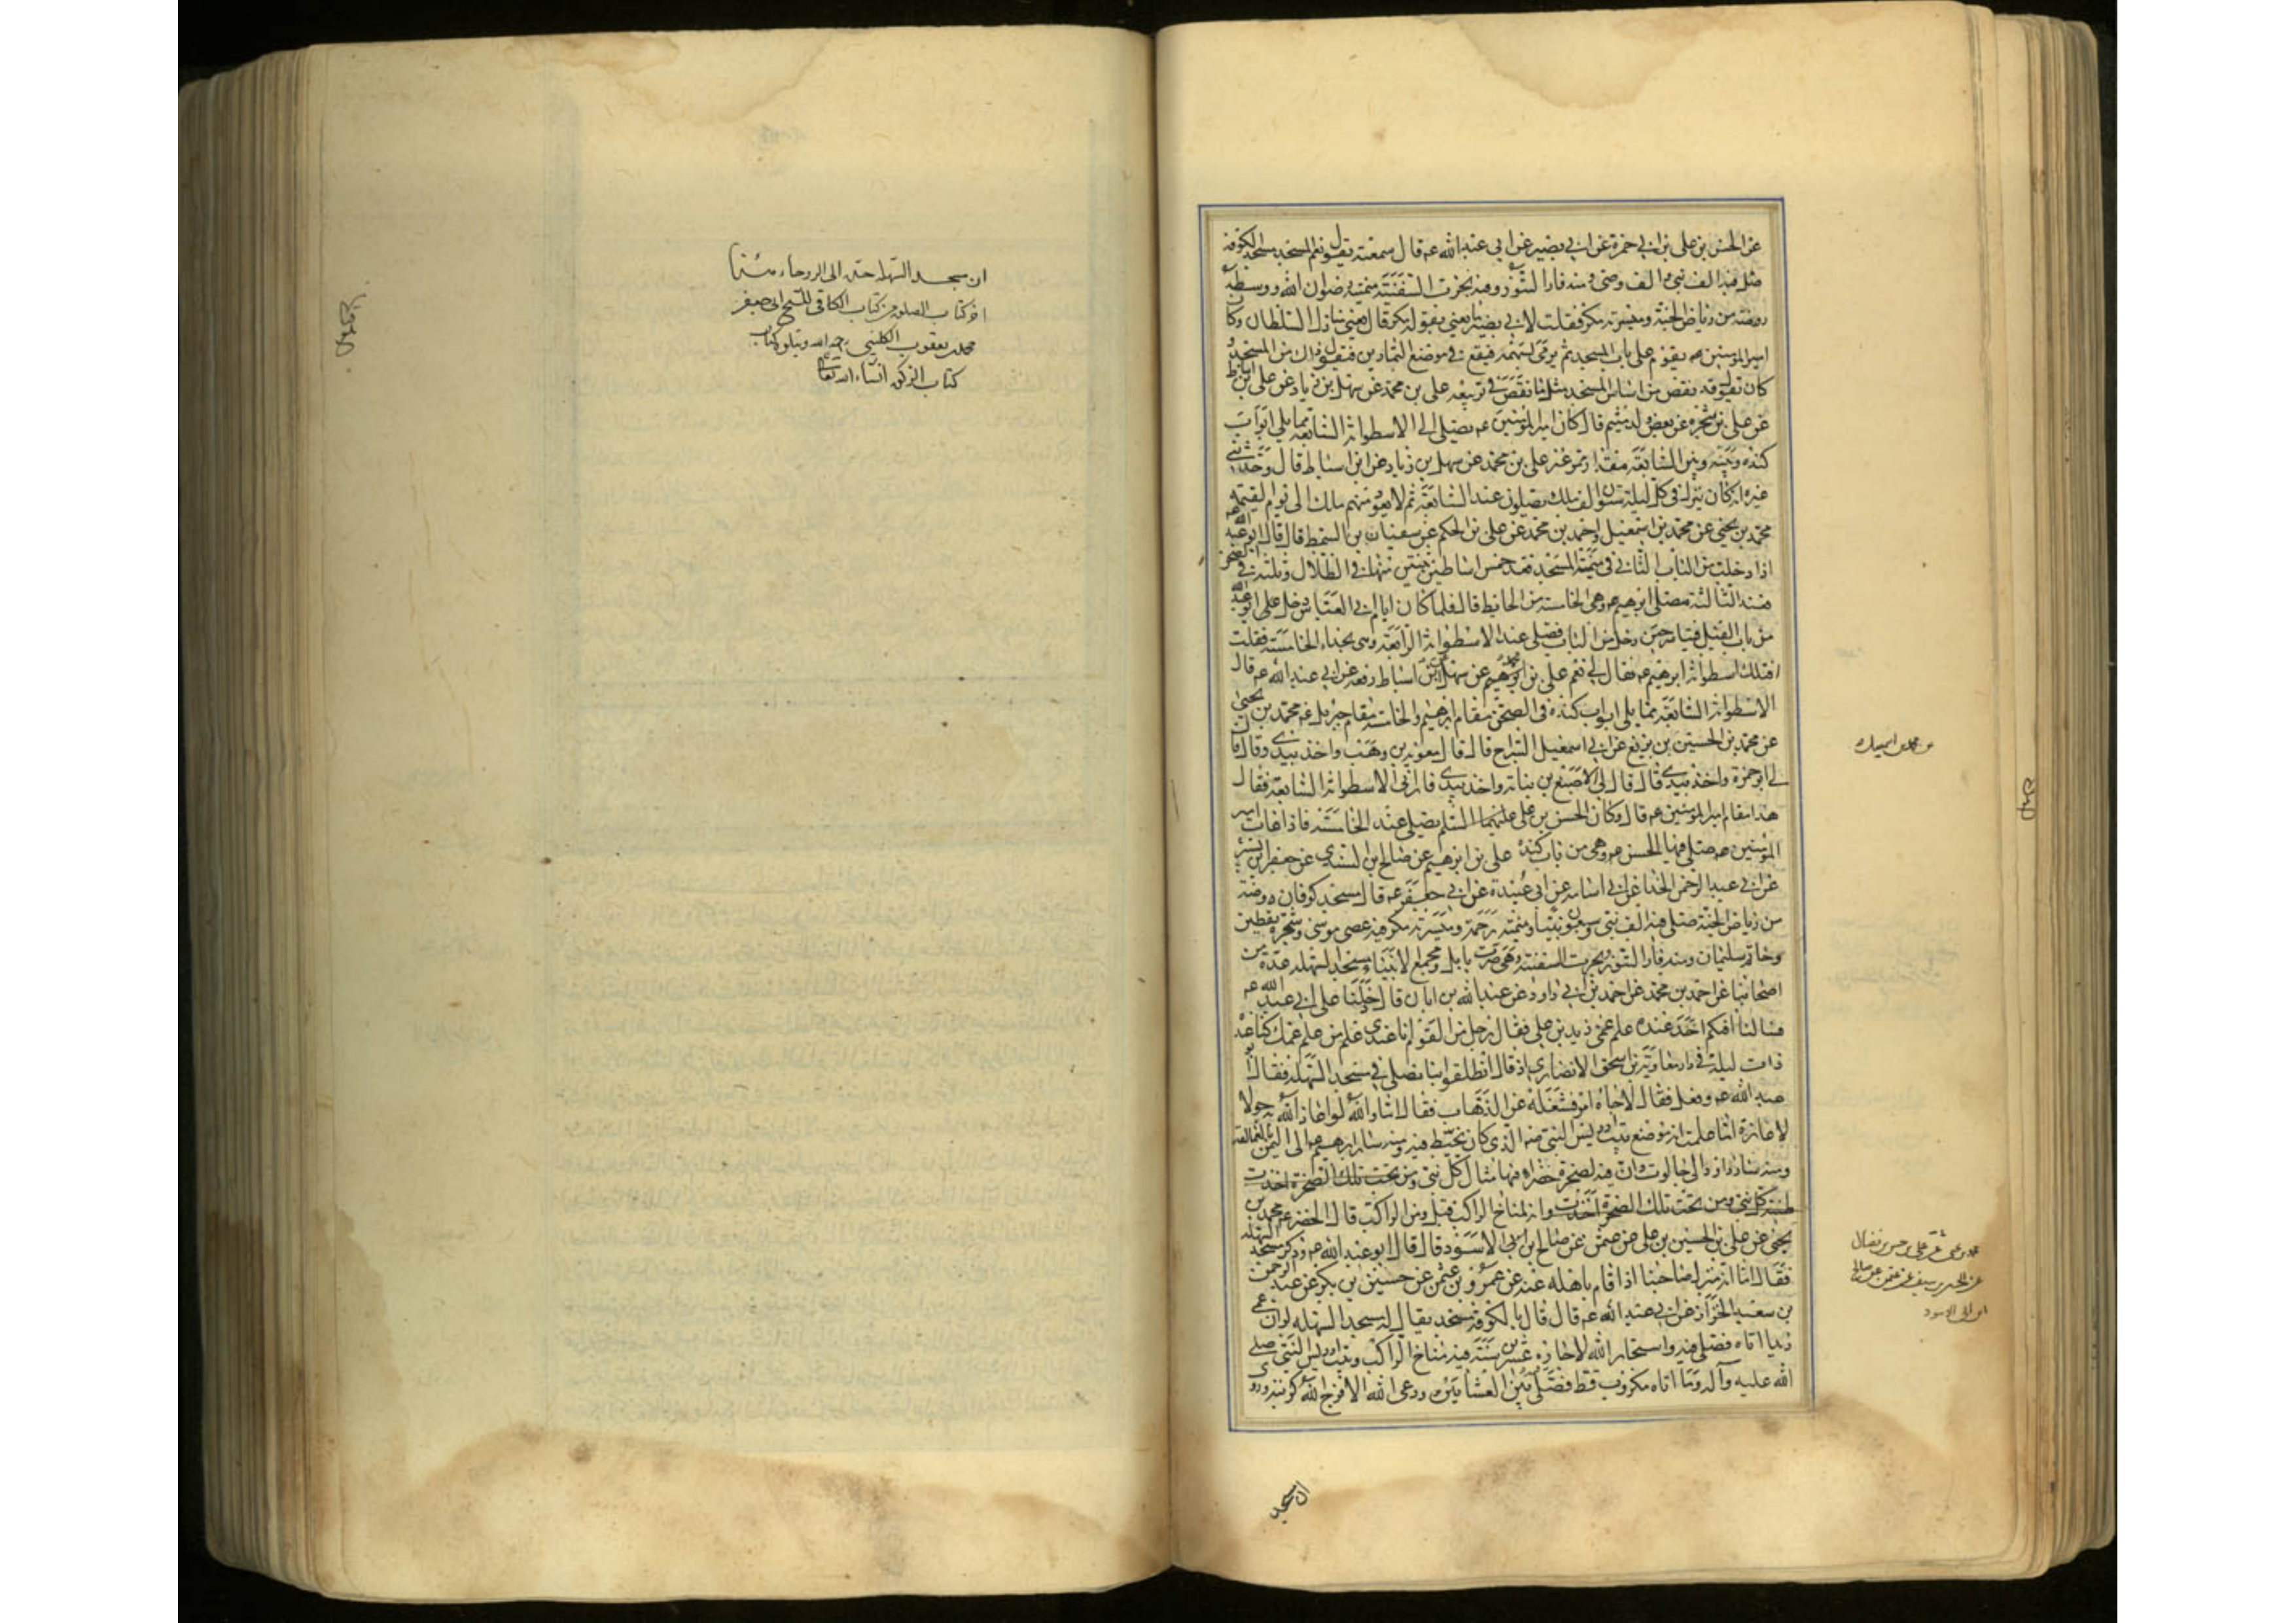 عن الحسن بن علي بن ابي حمزة عن ابي بصير عن ابي عبد الله عه قال سمعته يقول نعم المسجد مسجد الكوفة
صلى فيه الف نبي والف وصي ومنه فار التنور وفيه نجرت السفينة ميمنته رضوان الله ووسطه
روضة من رياض الجنة وميسرته مكر فقلت لابي بصير ما يعني بقوله مكر قال يعني منازل السلطان وكان
امير المؤمنين عه يقوم على باب المسجد ثم يرمي بسهمه فيقع في موضع التمارين فيقول ذاك من المسجد و
كان يقول قد نقص من اساس المسجد مثل ما نقص في تربيعه علي بن محمد عن سهل بن زياد عن علي بن اسباط
عن علي بن شجرة عن بعض ولد ميثم قال كان امير المؤمنين عه يصلي الى الاسطوانة السابعة مما يلي ابواب
كنده وبينه وبين السابعة مقدار ممر عنز علي بن محمد عن سهل بن زياد عن ابن اسباط قال وحدثني
غيره انه كان ينزل في كل ليلة ستون الف ملك يصلون عند السابعة ثم لا يعود منهم ملك الى يوم القيمة
محمد بن يحيى عن محمد بن اسمعيل واحمد بن محمد عن علي بن الحكم عن سفيان بن السمط قال قال ابو عبد الله عه
اذا دخلت من الباب الثاني في ميمنة المسجد فعد خمس اساطين ثنتين منها في الظلال وثلثة في الصحن
فعند الثالثة مصلى ابرهيم عه وهي الخامسة من الحايط قال فلما كان ايام ابي العباس دخل علي ابو عبد الله
من باب الفيل فتياسر حين دخل من الباب فصلى عند الاسطوانة الرابعة وهي بحذاء الخامسة فقلت
افتلك اسطوانة ابرهيم عه فقال لي نعم علي بن عن سهل عن ابن اسباط رفعه عن ابي عبد الله عه قال
الاسطوانة السابعة مما يلي ابواب كنده في الصحن مقام ابرهيم والخامسة مقام جبرئيل عه محمد بن يحيى
عن محمد بن الحسين بن بزيع عن ابي اسمعيل السراج قال قال معوية بن وهب واخذ بيدي وقال قال
لي ابو حمزة واخذ بيدي قال قال لي الاصبغ بن نباتة واخذ بيدي فاراني الاسطوانة السابعة فقال
هذا مقام امير المؤمنين عه قال وكان الحسن بن علي عليهما السلم يصلي عند الخامسة فاذا غاب امير
المؤمنين عه صلى فيها الحسن عه وهي من باب كنده علي بن ابرهيم عن صالح بن السندي عن جعفر بن بشير
عن ابي عبد الرحمن الحذا عن ابي اسامة عن ابي عبيدة عن ابي جعفر عه قال مسجد كوفان روضة
من رياض الجنة صلى فيه الف نبي وسبعون نبيا وميمنته رحمة وميسرته مكر فيه عصى موسى وشجرة يقطين
وخاتم سليمان ومنه فار التنور ونجرت السفينة وهي صرت بابل ومجمع الانبياء مسجد السهلة عدة من
اصحابنا عن احمد بن محمد عن احمد بن ابي داود عن عبد الله بن ابان قال دخلنا على ابي عبد الله عه
فسالنا افيكم احد عنده علم عمي زيد بن علي فقال رجل من القوم انا عندي علم من علم عمك كنا عنده
ذات ليلة في دار معاوية بن اسحق الانصاري اذ قال انطلقوا بنا نصلي في مسجد السهلة فقال ابو
عبد الله عه وفعل فقال لا جاءه امر فشغله عن الذهاب فقال اما والله لو اعاذ الله به حولا
لاعاذه اما علمت انه موضع بيت ادريس النبي عه الذي كان يخيط فيه ومنه سار ابرهيم عه الى اليمن بالعمالقة
ومنه سار داود الى جالوت وان فيه لصخرة خضراء فيها مثال كل نبي ومن تحت تلك الصخرة اخذت
طينة كل نبي ومن تحت تلك الصخرة اخذت وانه لمناخ الراكب قيل ومن الراكب قال الخضر عه محمد بن
يحيى عن علي بن الحسين بن علي عن عثمن عن صالح ابن ابي الاسود قال قال ابو عبد الله عه وذكر مسجد السهلة
فقال اما انه منزل صاحبنا اذا قام باهله عنه عن عمرو بن عثمن عن حسين بن بكر عن عبد الرحمن
بن سعيد الخزاز عن ابي عبد الله عه قال قال بالكوفة مسجد يقال له مسجد السهلة لو ان عمي
زيدا اتاه فصلى فيه واستجار الله لاجاره عشرين سنة فيه مناخ الراكب وبيت ادريس النبي صلى
الله عليه وآله وما اتاه مكروب قط فصلى فيه بين العشائين ودعى الله الا فرج الله كربته وروى
ان مسجد
عن محمد بن اسمعيل
عن صالح
ابن ابي الاسود
ان مسجد السهلة حده الى الروحاء
اخر كتاب الصلوة من كتاب الكافي للشيخ ابي جعفر
محمد بن يعقوب الكليني رحمه الله ويتلوه كتاب
كتاب الزكوة انشاء الله تعالى